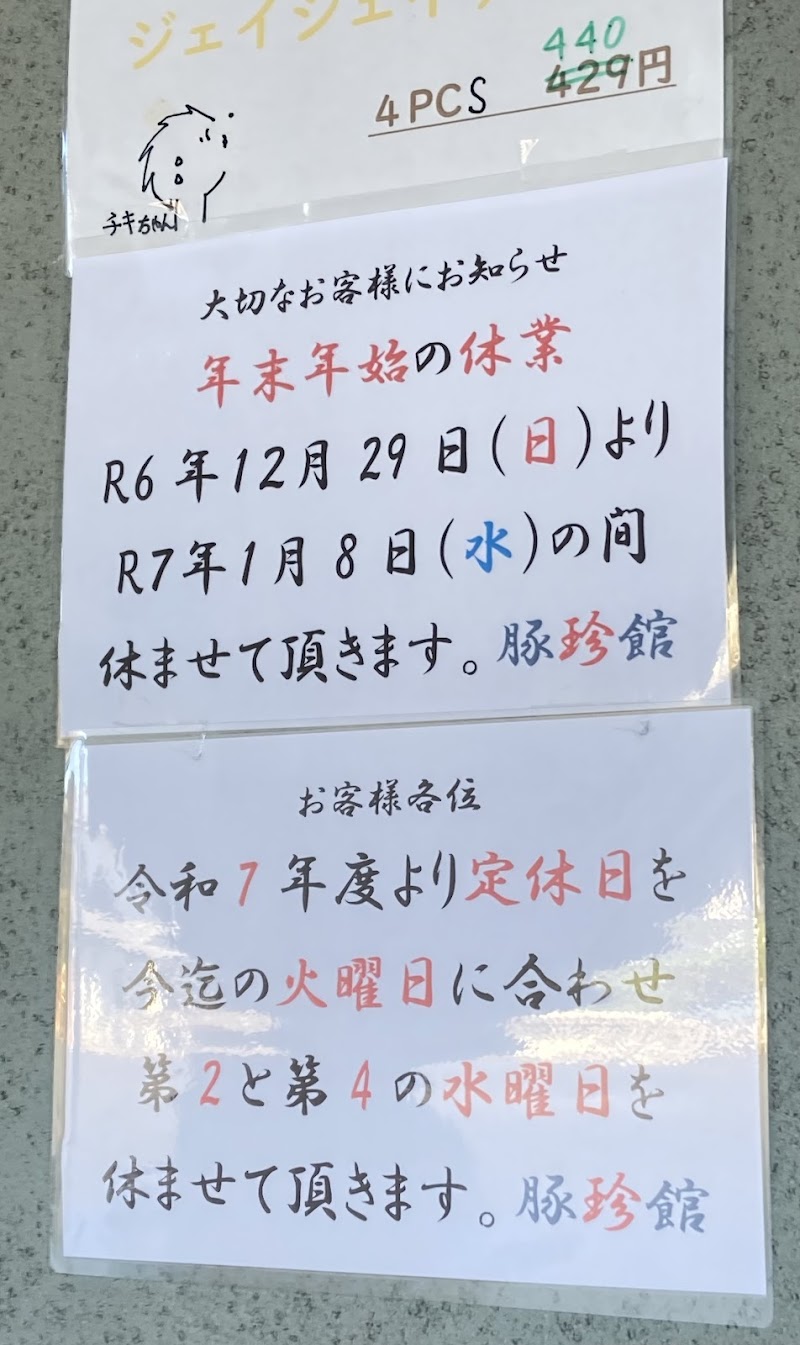 ジェイジェイ
440
4PCS 429円
チキちゃん!
大切なお客様にお知らせ
年末年始の休業
R6年12月29日(日)より
R7年1月8日(水)の間
休ませて頂きます。豚珍館
お客様各位
令和7年度より定休日を
今迄の火曜日に合わせ
第2と第4の水曜日を
休ませて頂きます。豚珍館